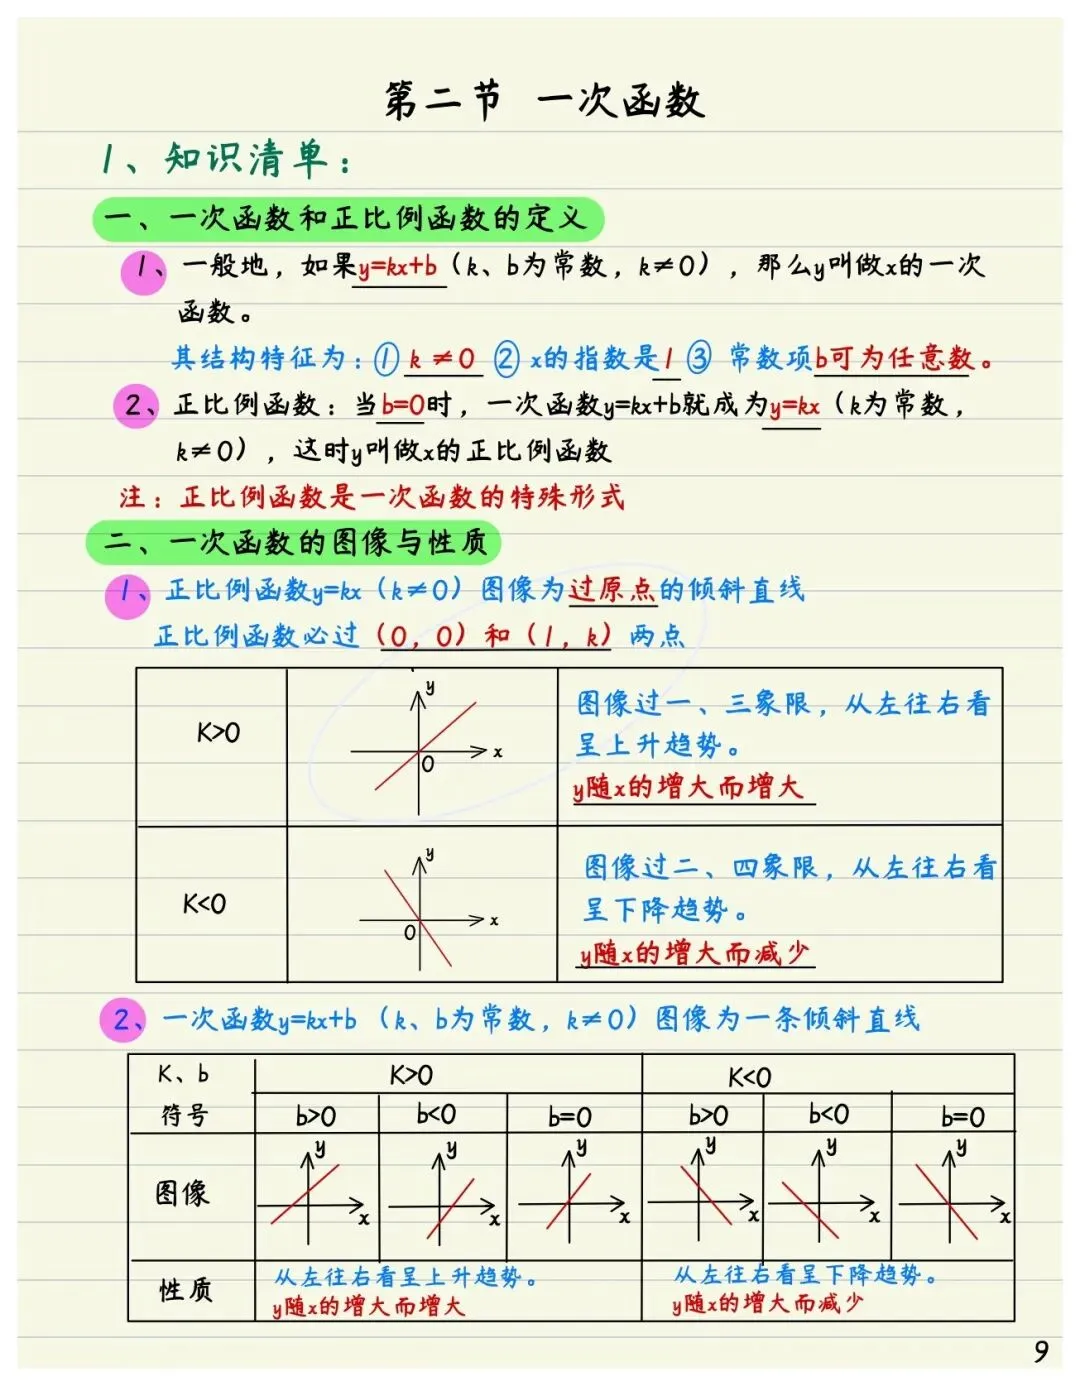 第二节 一次函数
1、知识清单：
一、一次函数和正比例函数的定义
1、一般地，如果y=kx+b（k、b为常数，k≠0），那么y叫做x的一次
函数。
其结构特征为：① k≠0 ② x的指数是1 ③ 常数项b可为任意数。
2、正比例函数：当b=0时，一次函数y=kx+b就成为y=kx（k为常数，
k≠0），这时y叫做x的正比例函数
注：正比例函数是一次函数的特殊形式
二、一次函数的图像与性质
1、正比例函数y=kx（k≠0）图像为过原点的倾斜直线
正比例函数必过（0，0）和（1，k）两点
K>0
y
x
O
图像过一、三象限，从左往右看
呈上升趋势。
y随x的增大而增大
K<0
y
x
O
图像过二、四象限，从左往右看
呈下降趋势。
y随x的增大而减少
2、一次函数y=kx+b（k、b为常数，k≠0）图像为一条倾斜直线
K、b
符号
K>0
K<0
b>0
b<0
b=0
b>0
b<0
b=0
图像
y
x
y
x
y
x
y
x
y
x
y
x
性质
从左往右看呈上升趋势。
y随x的增大而增大
从左往右看呈下降趋势。
y随x的增大而减少
9